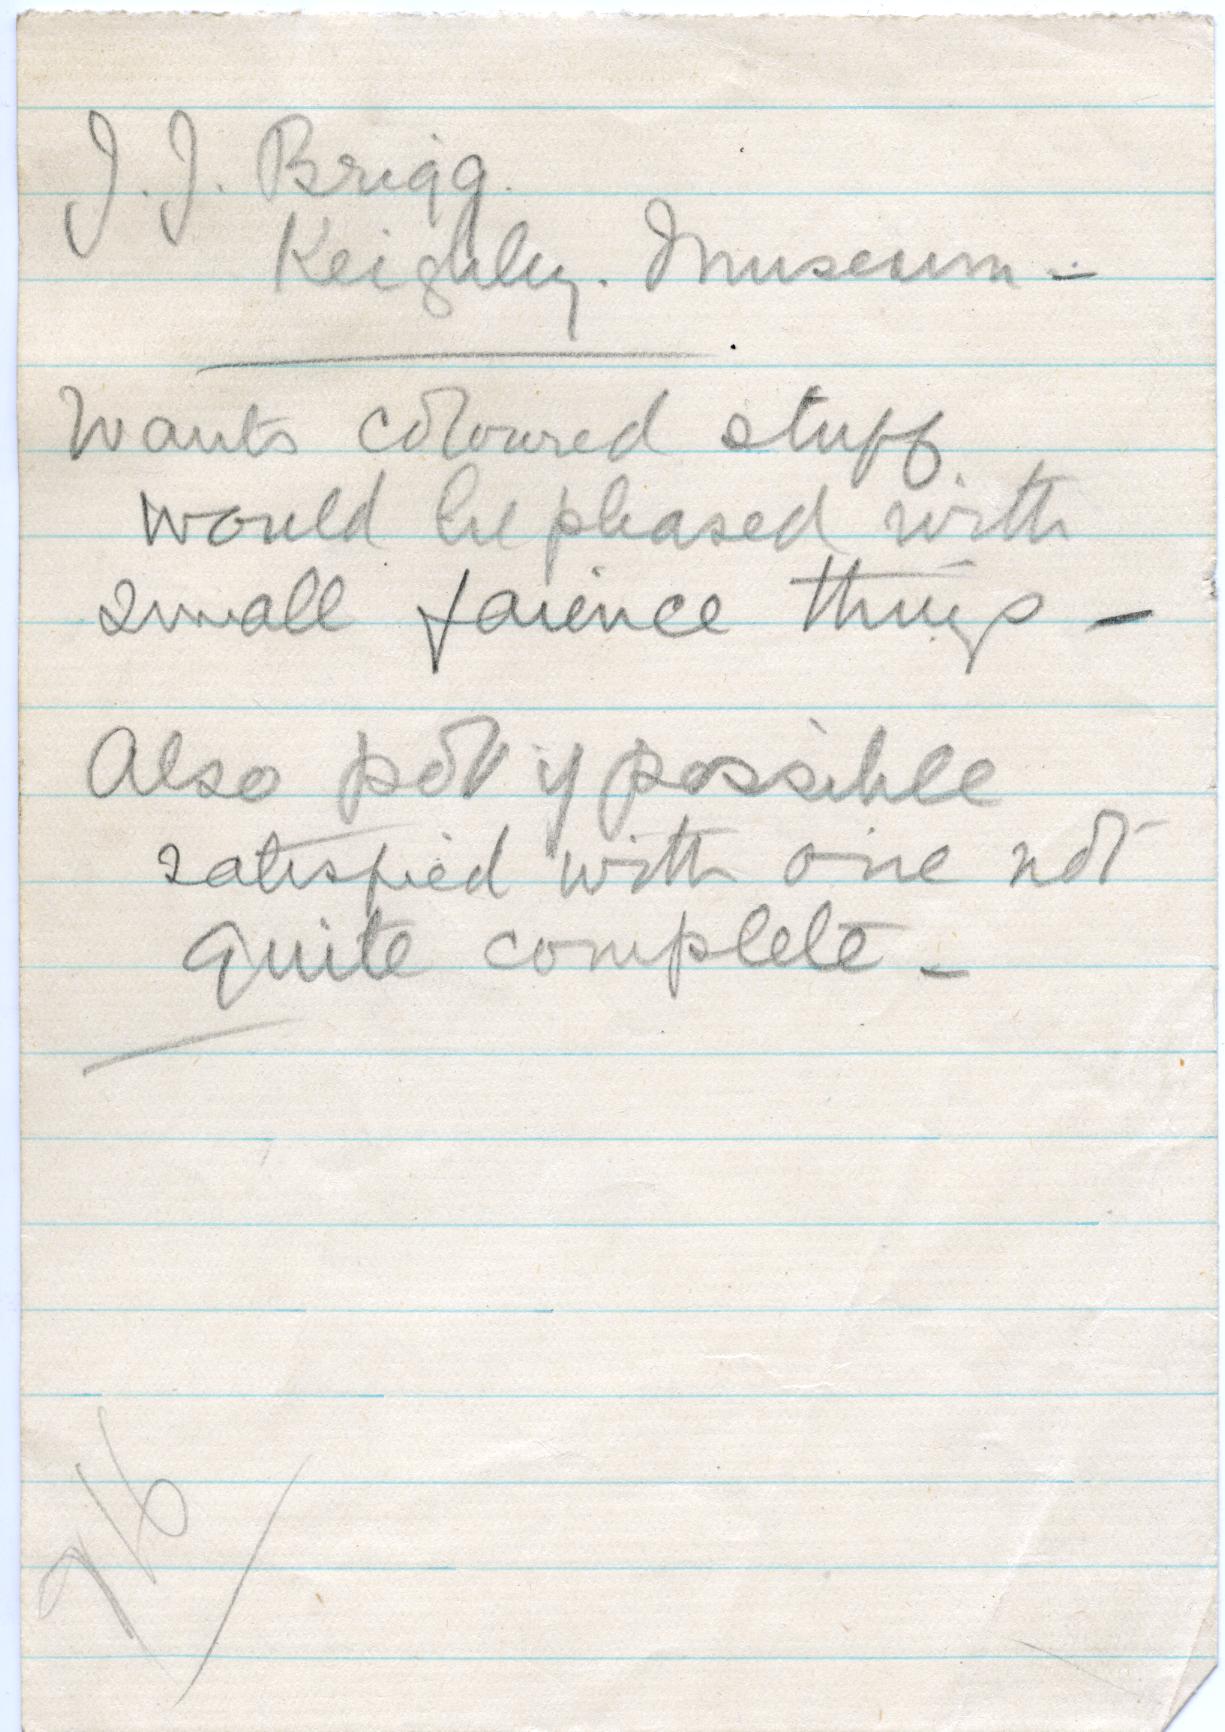 J. J. Brigg.
Keighley. Museum -
Wants coloured stuff
would be pleased with
small faience things -
Also pot if possible
satisfied with one not
quite complete -